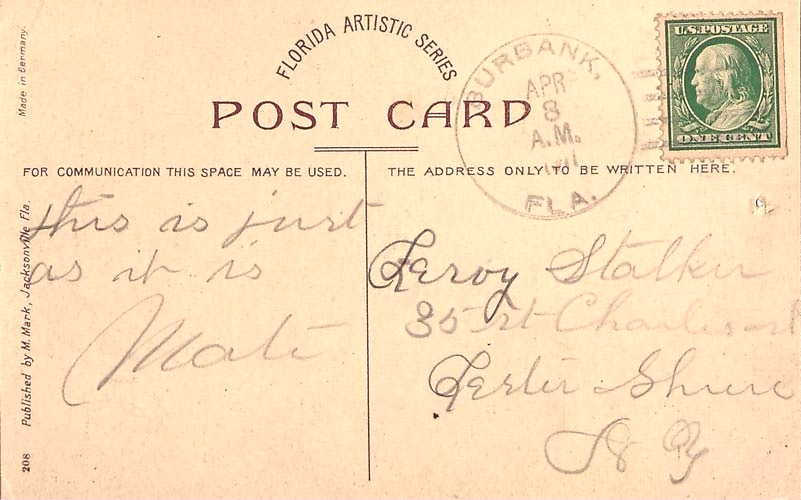 FLORIDA ARTISTIC SERIES
POST CARD
FOR COMMUNICATION THIS SPACE MAY BE USED.
THE ADDRESS ONLY TO BE WRITTEN HERE.
Made in Germany.
Published by M. Mark, Jacksonville Fla.
208
BURBANK,
APR
8
A.M.
FLA.
U.S. POSTAGE
ONE CENT
this is just
as it is
Mate
Leroy Stalker
35 St Charles st
Lester Shire
N Y